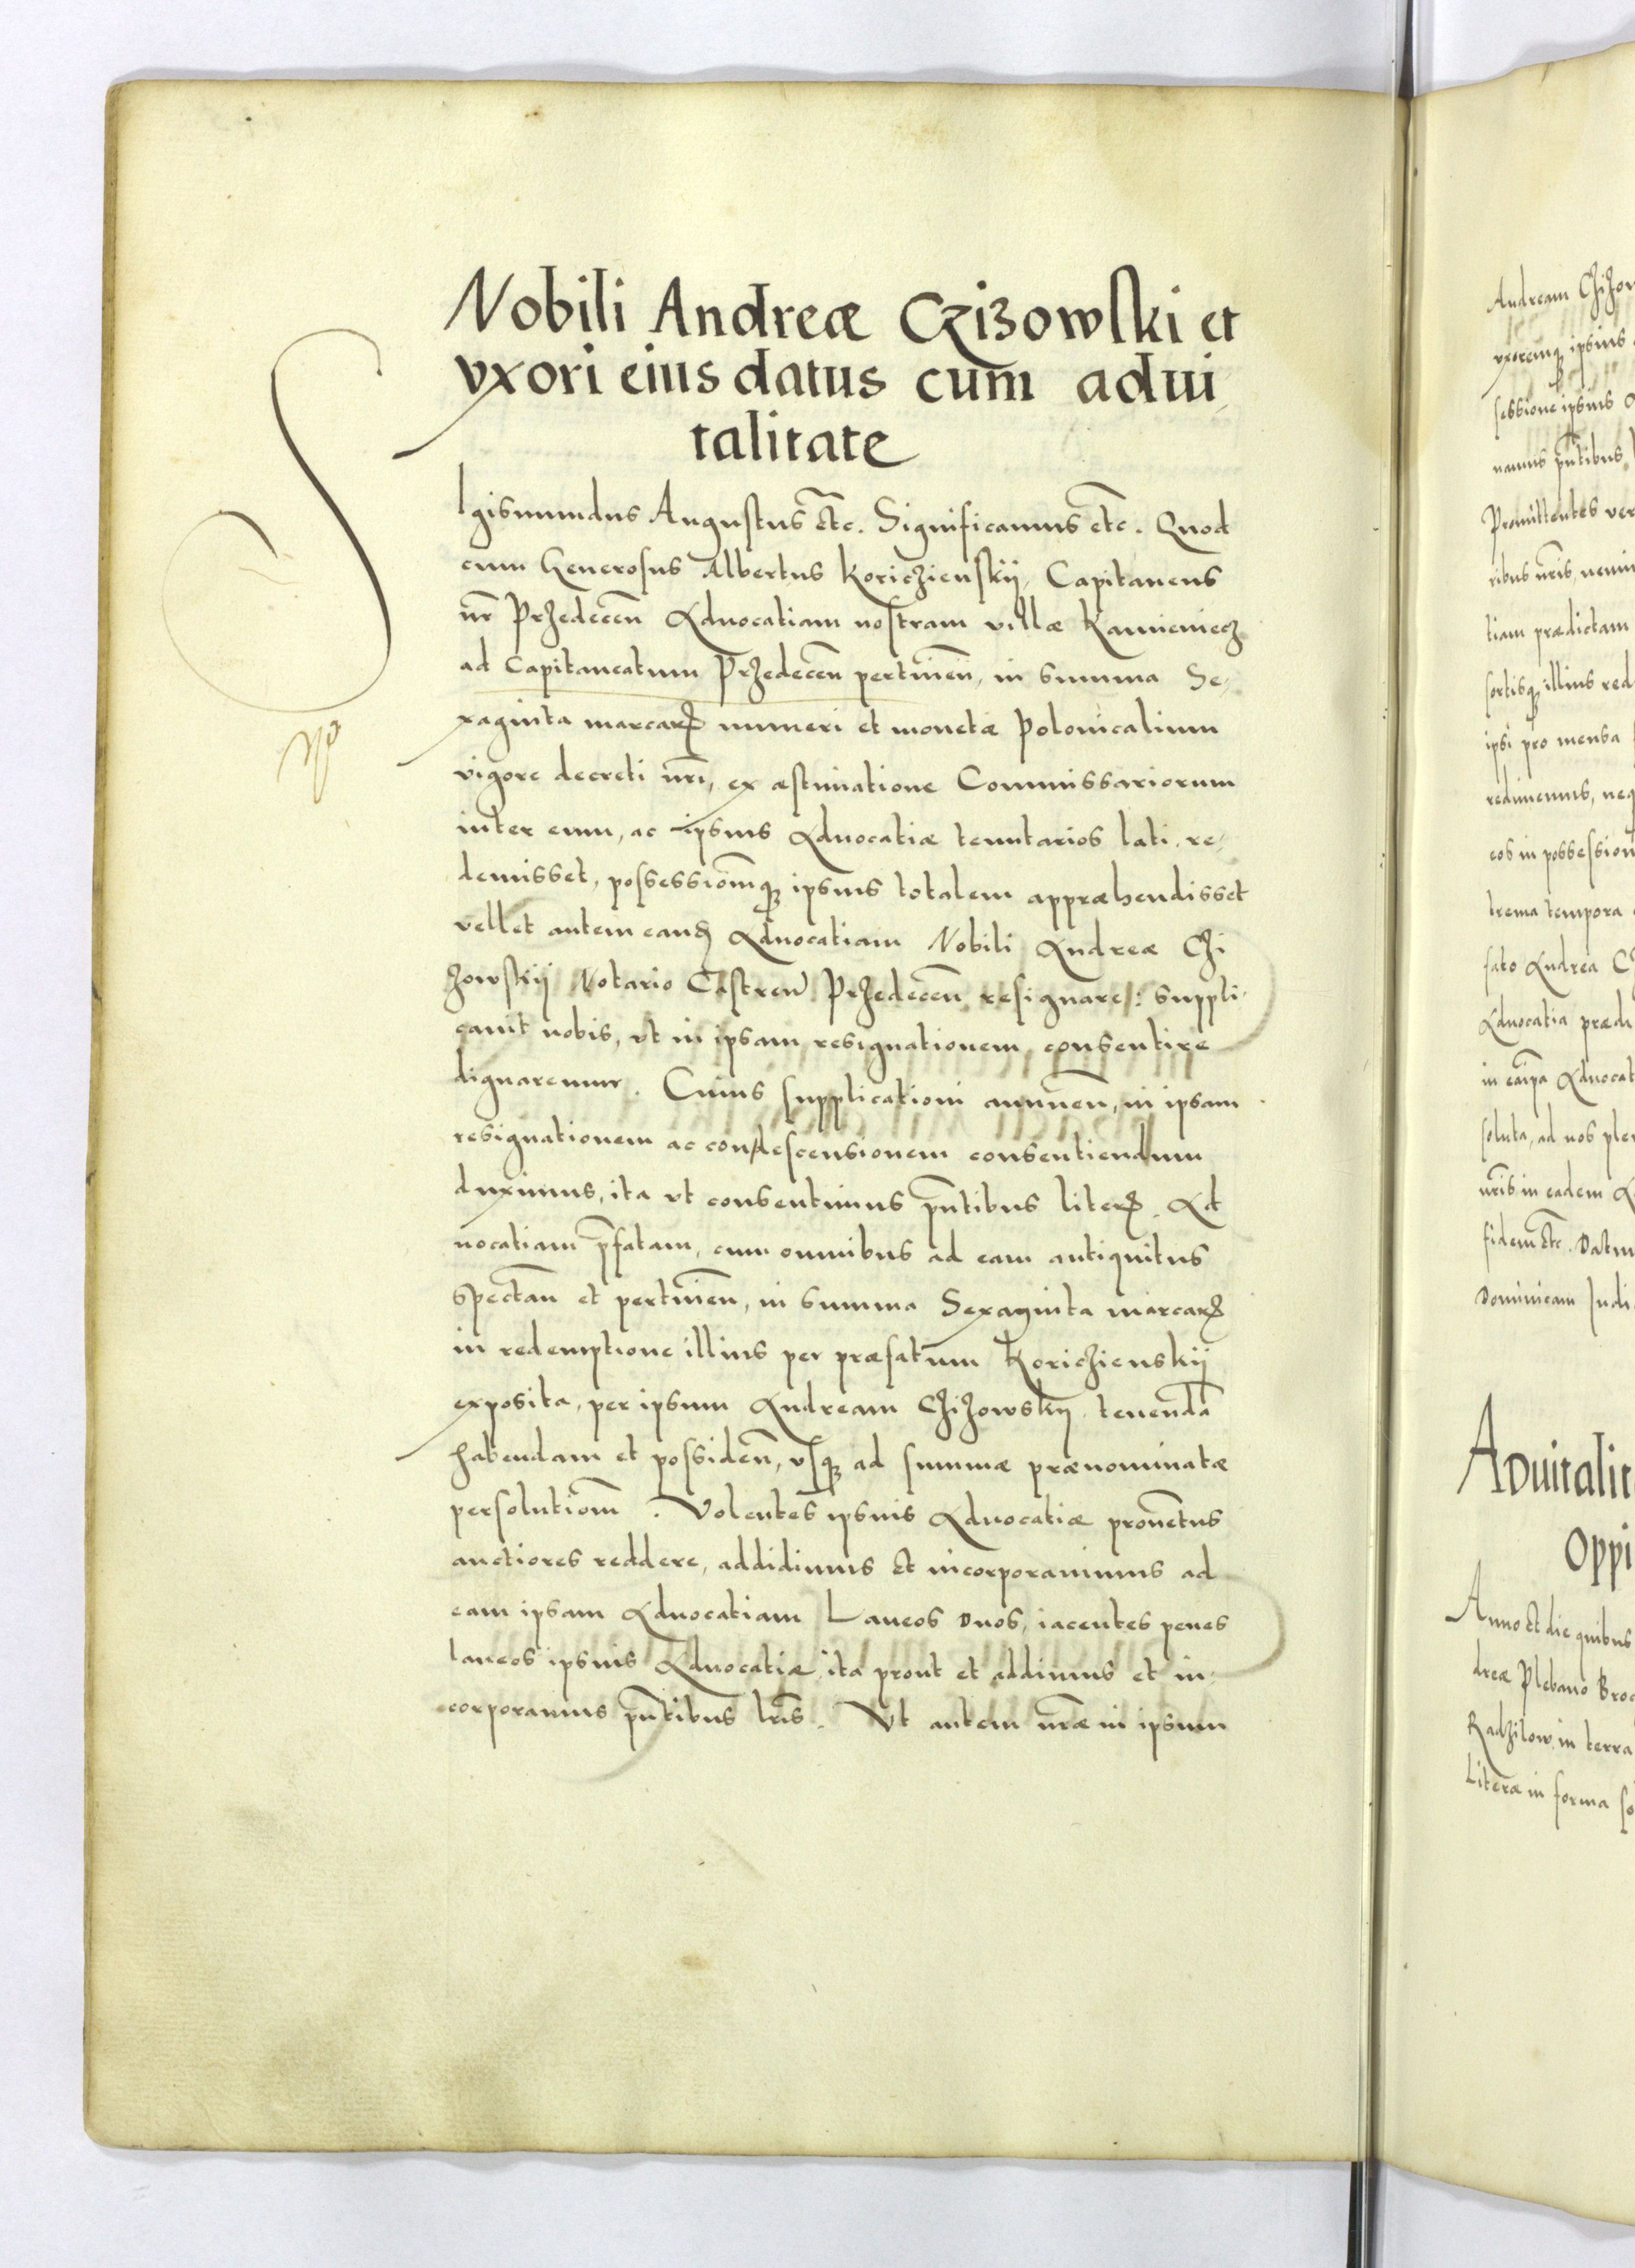 Nobili Andreæ Czizowski et
vxori eius datus cum adui,
talitate
SIgismundus Augustus etc̄. Significamus etc̄. Quod
cum Generosus Albertus Koriczienskij, Capitaneus
nr̄ Przedecen̄ Aduocatiam nostram villæ Kamieniecz
ad Capitaneatum Przedecen̄ pertinen̄, in summa Se,
xaginta marcarꝝ numeri et monetæ Polonicalium
vigore decreti nr̄i, ex æstimatione Commissariorum
inter eum, ac ipsius Aduocatiæ tenutarios lati, re,
demisset, possessiom̄qꝫ ipsius totalem appræhendisset
vellet autem eandꝫ Aduocatiam Nobili Andreæ Czi
zowskij Notario Castren̄ Przedecen̄ resignare: suppli,
cauit nobis, vt in ipsam resignationem consentire
dignaremur. Cuius supplicationi annuen̄, in ipsam
resignationem ac condescensionem consentiendum
duximus, ita vt consentimus pn̄tibus literꝭ. Ad
uocatiam p̄fatam, cum omnibus ad eam antiquitus
spectan̄ et pertinen̄, in summa Sexaginta marcarꝝ
in redemptione illius per præfatum Koriczienskij
exposita, per ipsum Andream Czizowskij tenendā
habendam et possiden̄, vsqꝫ ad summæ prænominatæ
persolutiom̄. Volentes ipsius Aduocatiæ prouētus
auctiores reddere, addidimus et incorporauimus ad
eam ipsam Aduocatiam Laneos duos, iacentes penes
laneos ipsius Aduocatiæ, ita prout et addimus et in,
corporamus pn̄tibus lr̄is. Vt autem nr̄æ in ipsum
Andream Czizow
vxoremqꝫ ipsius
sessione ipsius
namus pn̄tibus
Promittentes ver
ribus nr̄is,
tiam prædictam
sortisqꝫ illius red
ipsi pro mensa
redimemus, neq
eos in possession
trema tempora
fato Andrea
Aduocatia prædi
in Aduocat
soluta, ad nos ple
nr̄is in eadem
fidem etc̄. Datu
Dominicam Judi
Aduitalit
Oppi
Anno et die quibus
dreæ Plebano Bro
Radzilow in terra
Literæ in forma